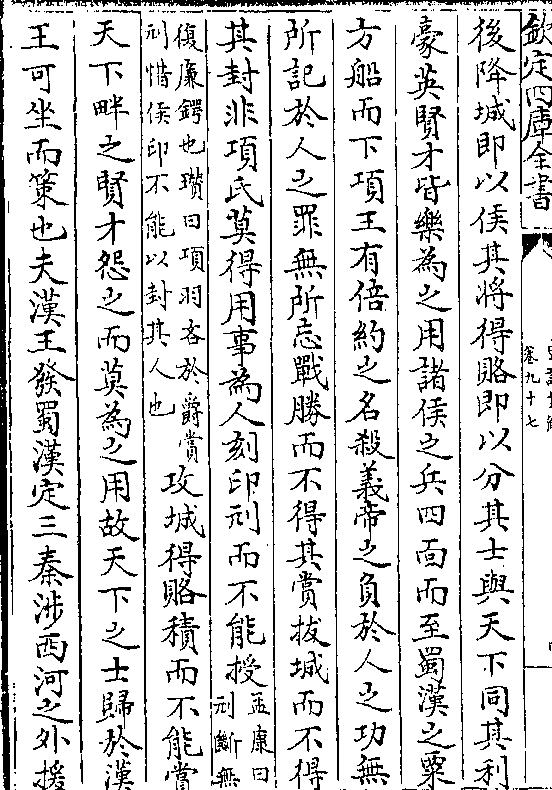 欽定四庫全書
卷九十七
後降城即以侯其將得賂即以分其士與天下同其利
豪英賢才皆樂為之用諸侯之兵四面而至蜀漢之粟
方船而下項王有倍約之名殺義帝之負於人之功無
所記於人之罪無所忘戰勝而不得其賞拔城而不得
其封非項氏莫得用事為人刻印刓而不能授
孟康曰
刓斷無
復廉鍔也瓚曰項羽吝於爵賞
刓惜侯印不能以封其人也
攻城得賂積而不能賞
天下畔之賢才怨之而莫為之用故天下之士歸於漢
王可坐而策也夫漢王發蜀漢定三秦涉西河之外援